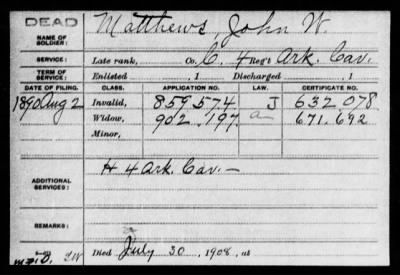 DEAD
NAME OF SOLDIER: Matthews, John W.
SERVICE: Late rank, Co. C, 4 Reg't Ark. Cav.
TERM OF SERVICE: Enlisted , 1 Discharged , 1
DATE OF FILING. CLASS. APPLICATION NO. LAW. CERTIFICATE NO.
1890 Aug 2 Invalid, 859,574 J 632,078
Widow, 902,197 a 671,692
Minor,
ADDITIONAL SERVICES: H 4 Ark. Cav. —
REMARKS:
Died July 30, 1908, at